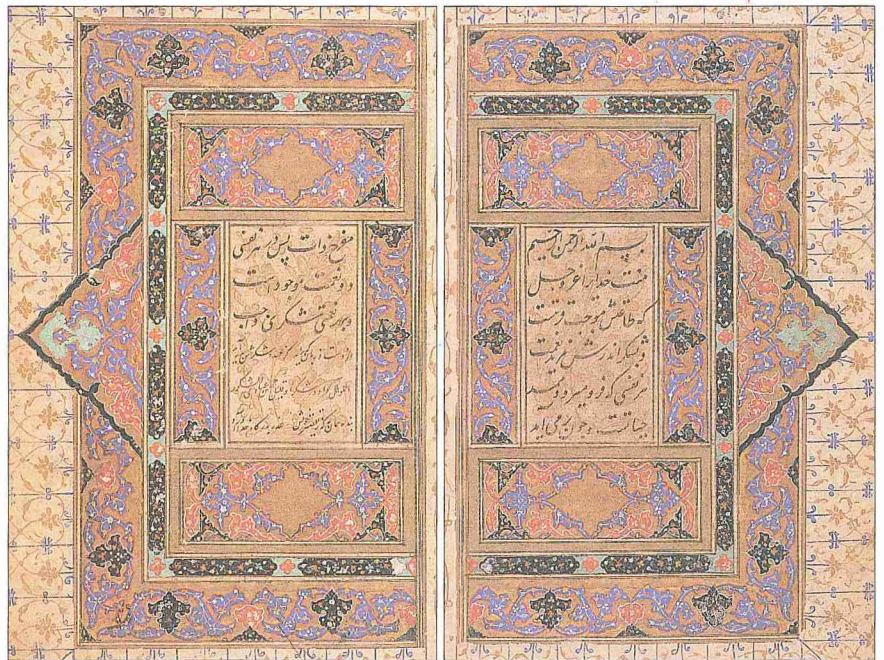 بسم الله الرحمن الرحیم
منت خدایرا عز و جل
که طاعتش موجب قربت
و بشکر اندرش مزید نعمت
هر نفسی که فرو میرود ممد
حیاتست و چون بر می آید
مفرح ذات پس در هر نفسی
دو نعمت موجود است
و بر هر نعمتی شکری واجب
از دست و زبان که برآید کز عهده شکرش بدر آید
اعملوا آل داود شکرا و قلیل من عبادی الشکور
بنده همان به که ز تقصیر خویش عذر بدرگاه خدا آورد